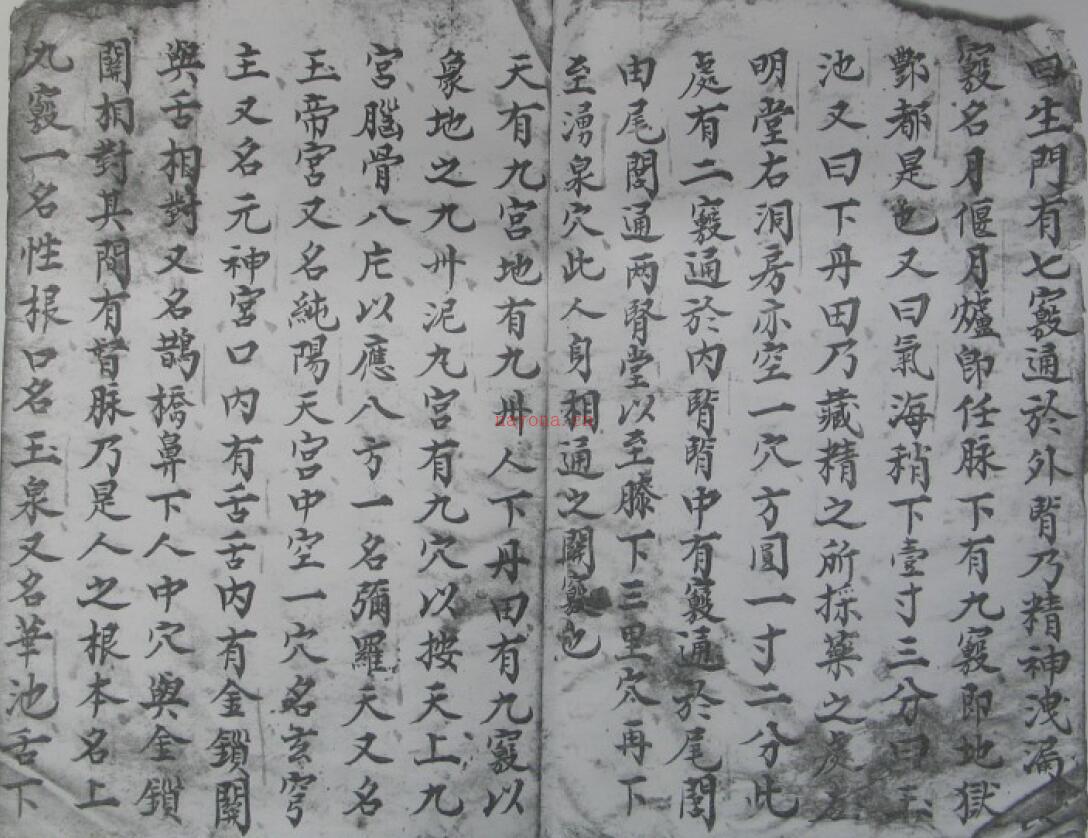 曰生門有七竅通於外腎乃精神洩漏
竅名月偃月爐即任脉下有九竅即地獄
酆都是也又曰氣海稍下壹寸三分曰玉
池又曰下丹田乃藏精之所採藥之處左
明堂右洞房亦空一穴方圓一寸二分此
處有二竅通於内腎腎中有竅通於尾閭
由尾閭通两腎堂以至膝下三里穴再下
至湧泉穴此人身相通之關竅也
天有九宮地有九州人下丹田有九竅以
象地之九州泥丸宮有九穴以按天上九
宮腦骨八片以應八方一名彌羅天又名
玉帝宮又名純陽天宮中空一穴名玄穹
主又名元神宮口内有舌舌内有金鎖關
與舌相對又名鵲橋鼻下人中穴與金鎖
關相對其間有督脉乃是人之根本名上
九竅一名性根口名玉泉又名華池舌下
nayona.cn